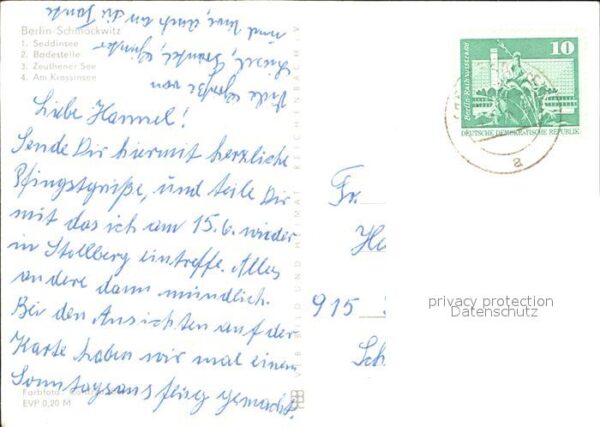 Berlin-Schmöckwitz
1. Seddinsee
2. Badestelle
3. Zeuthener See
4. Am Krossinsee
Liebe Hannel!
Sende Dir hiermit herzliche
Pfingstgrüße, und teile Dir
mit das ich am 15.6. wieder
in Stollberg eintreffe. Alles
andere dann mündlich.
Bei den Ansichten auf der
Karte haben wir mal einen
Sonntagsausflug gemacht.
Viele Grüße von
und
auch an die Tante
Farbfoto:
EVP 0,20 M
VEB BILD UND HEIMAT REICHENBACH i.V
10
Berlin-Rathausstraße
DEUTSCHE DEMOKRATISCHE REPUBLIK
a
Fr.
Ha
915
Sch
privacy protection
Datenschutz